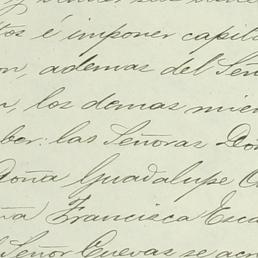 é imponer capita
on, ademas del Señ
los demas miem
ber: las Señoras Doñ
Doña Guadalupe
ña Francisca Esca
Señor Cuevas se acr